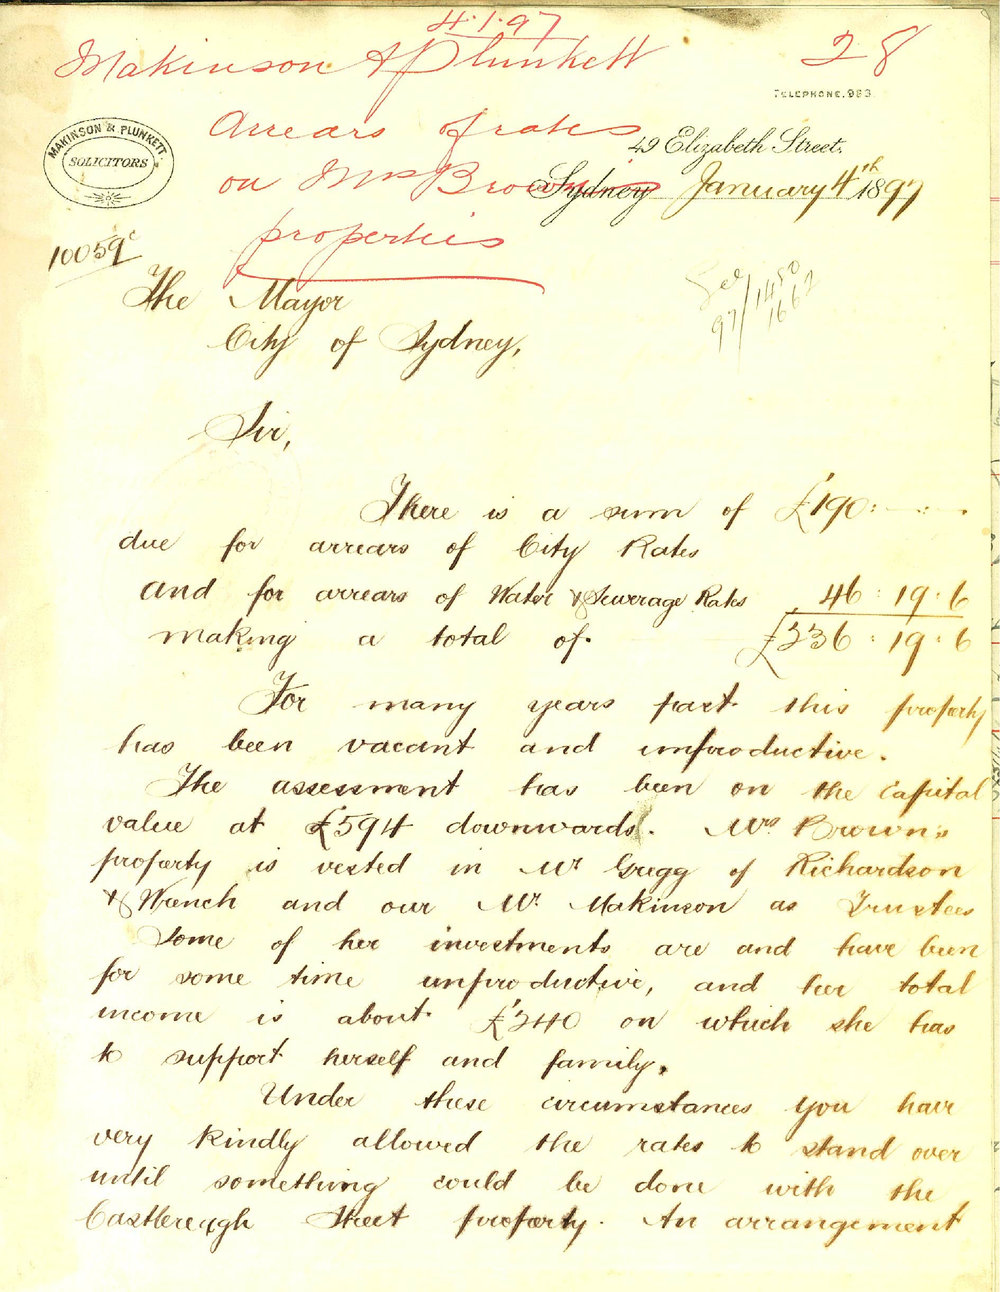 4.1.97
Makinson & Plunkett 28
TELEPHONE. 983.
MAKINSON & PLUNKETT.
SOLICITORS
Arrears of rates
49 Elizabeth Street.
on Mrs Brown's
Sydney January 4th 1897
properties
10059c
The Mayor
City of Sydney,
See
97/1480
1662
Sir,
There is a sum of £190: — : — .
due for arrears of City Rates
and for arrears of Water & Sewerage Rates 46 : 19 . 6
making a total of. £236 : 19 . 6
For many years past this property
has been vacant and unproductive.
The assessment has been on the capital
value at £594 downwards. Mrs Brown's
property is vested in Mr Gregg of Richardson
& Wrench and our Mr. Makinson as Trustees
Some of her investments are and have been
for some time unproductive, and her total
income is about £240 on which she has
to support herself and family.
Under these circumstances you have
very kindly allowed the rates to stand over
until something could be done with the
Castlereagh Street property. An arrangement